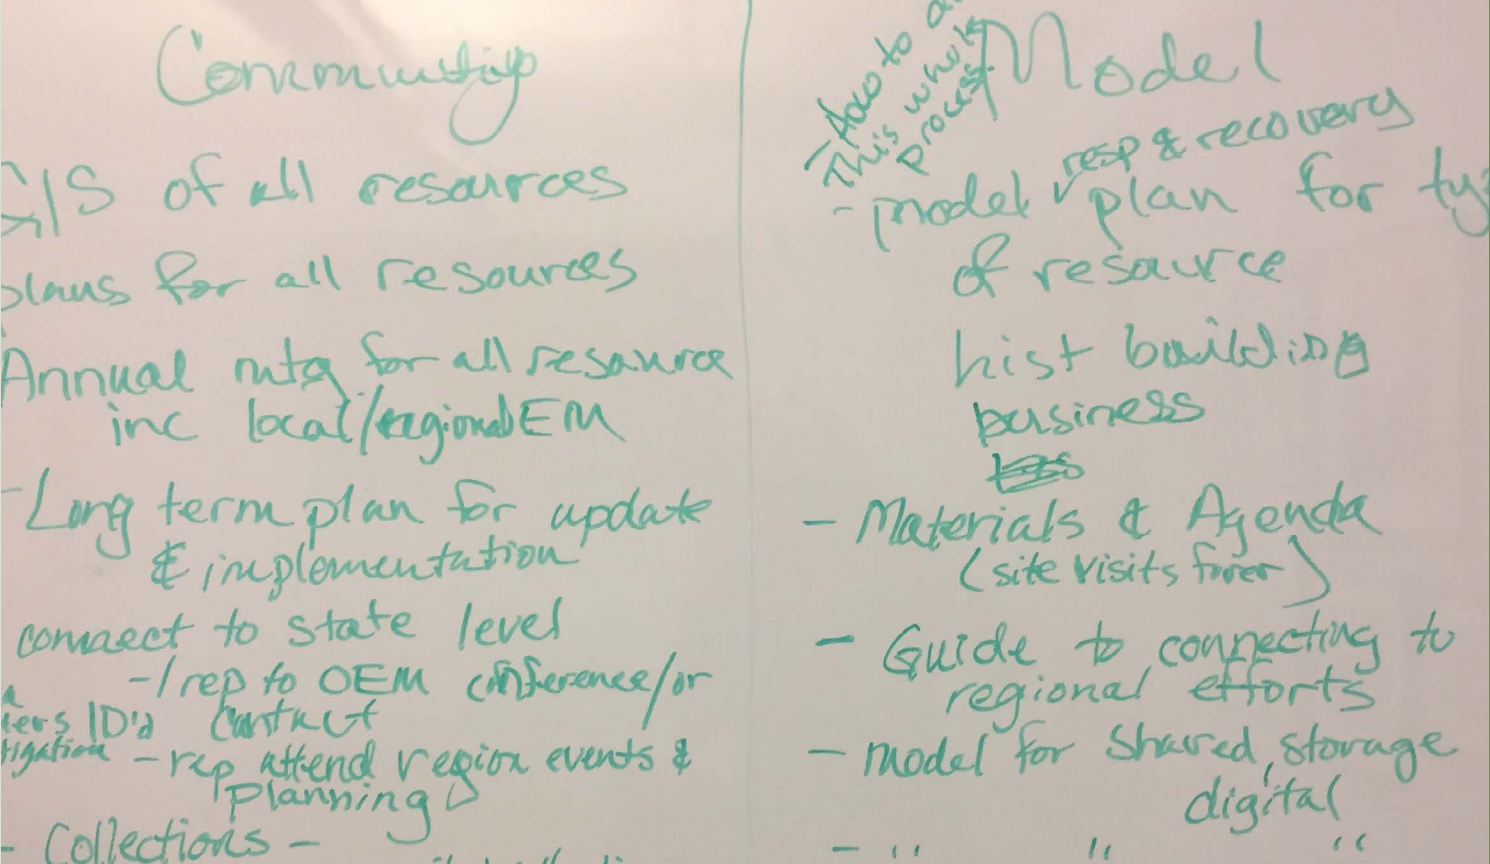 Community
GIS of all resources
plans for all resources
Annual mtg for all resource
inc local/regional EM
- Long term plan for update
& implementation
connect to state level
- 1 rep to OEM conference/or
ID'd contact
- rep attend region events &
planning
- Collections -
Model
- How to
This whole
process
resp & recovery
- model plan for
of resource
hist building
business
- Materials & Agenda
(site visits
- Guide to connecting to
regional efforts
- model for shared, storage
digital
- " " "